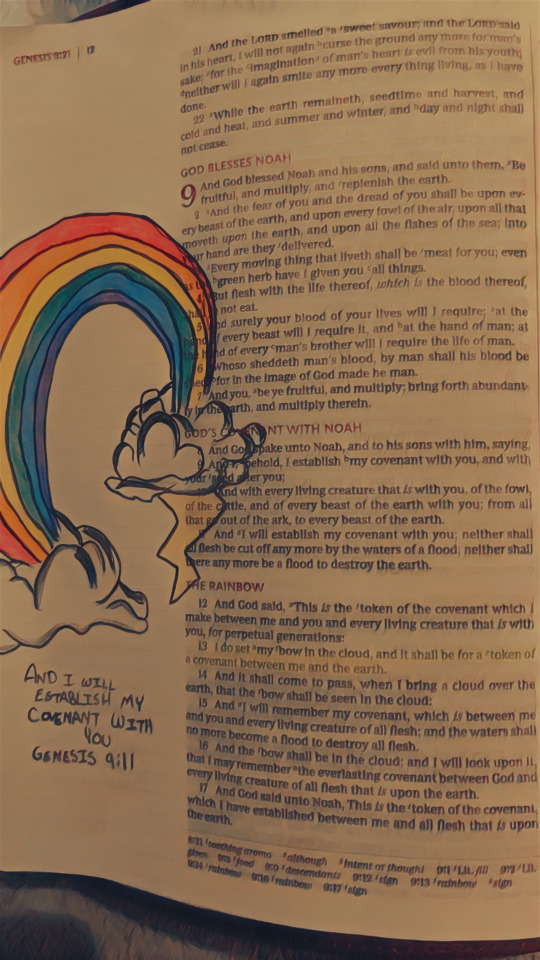 GENESIS 8:21 | 12
21 And the LORD smelled a sweet savour; and the LORD said
in his heart, I will not again curse the ground any more for man's
sake; for the imagination of man's heart is evil from his youth;
neither will I again smite any more every thing living, as I have
done.
22 While the earth remaineth, seedtime and harvest, and
cold and heat, and summer and winter, and day and night shall
not cease.
GOD BLESSES NOAH
9 And God blessed Noah and his sons, and said unto them, Be
fruitful, and multiply, and replenish the earth.
2 And the fear of you and the dread of you shall be upon ev-
ery beast of the earth, and upon every fowl of the air, upon all that
moveth upon the earth, and upon all the fishes of the sea; into
your hand are they delivered.
Every moving thing that liveth shall be meat for you; even
as the green herb have I given you all things.
4 But flesh with the life thereof, which is the blood thereof,
shall not eat.
5 And surely your blood of your lives will I require; at the
hand of every beast will I require it, and at the hand of man; at
the hand of every man's brother will I require the life of man.
6 Whoso sheddeth man's blood, by man shall his blood be
shed: for in the image of God made he man.
7 And you, be ye fruitful, and multiply; bring forth abundant-
ly in the earth, and multiply therein.
GOD'S COVENANT WITH NOAH
And God spake unto Noah, and to his sons with him, saying,
9 And I, behold, I establish my covenant with you, and with
your seed after you;
And with every living creature that is with you, of the fowl,
of the cattle, and of every beast of the earth with you; from all
that go out of the ark, to every beast of the earth.
And I will establish my covenant with you; neither shall
all flesh be cut off any more by the waters of a flood; neither shall
there any more be a flood to destroy the earth.
THE RAINBOW
12 And God said, This is the token of the covenant which I
make between me and you and every living creature that is with
you, for perpetual generations:
13 I do set my bow in the cloud, and it shall be for a token of
a covenant between me and the earth.
14 And it shall come to pass, when I bring a cloud over the
earth, that the bow shall be seen in the cloud:
15 And I will remember my covenant, which is between me
and you and every living creature of all flesh; and the waters shall
no more become a flood to destroy all flesh.
16 And the bow shall be in the cloud; and I will look upon it,
that I may remember the everlasting covenant between God and
every living creature of all flesh that is upon the earth.
17 And God said unto Noah, This is the token of the covenant,
which I have established between me and all flesh that is upon
the earth.
8:21 soothing aroma although intent or thought 9:1 Lit. fill 9:2 Lit.
given 9:3 food 9:9 descendants 9:12 sign 9:13 rainbow sign
9:14 rainbow 9:16 rainbow 9:17 sign
AND I WILL
ESTABLISH MY
COVENANT WITH
YOU
GENESIS 9:11